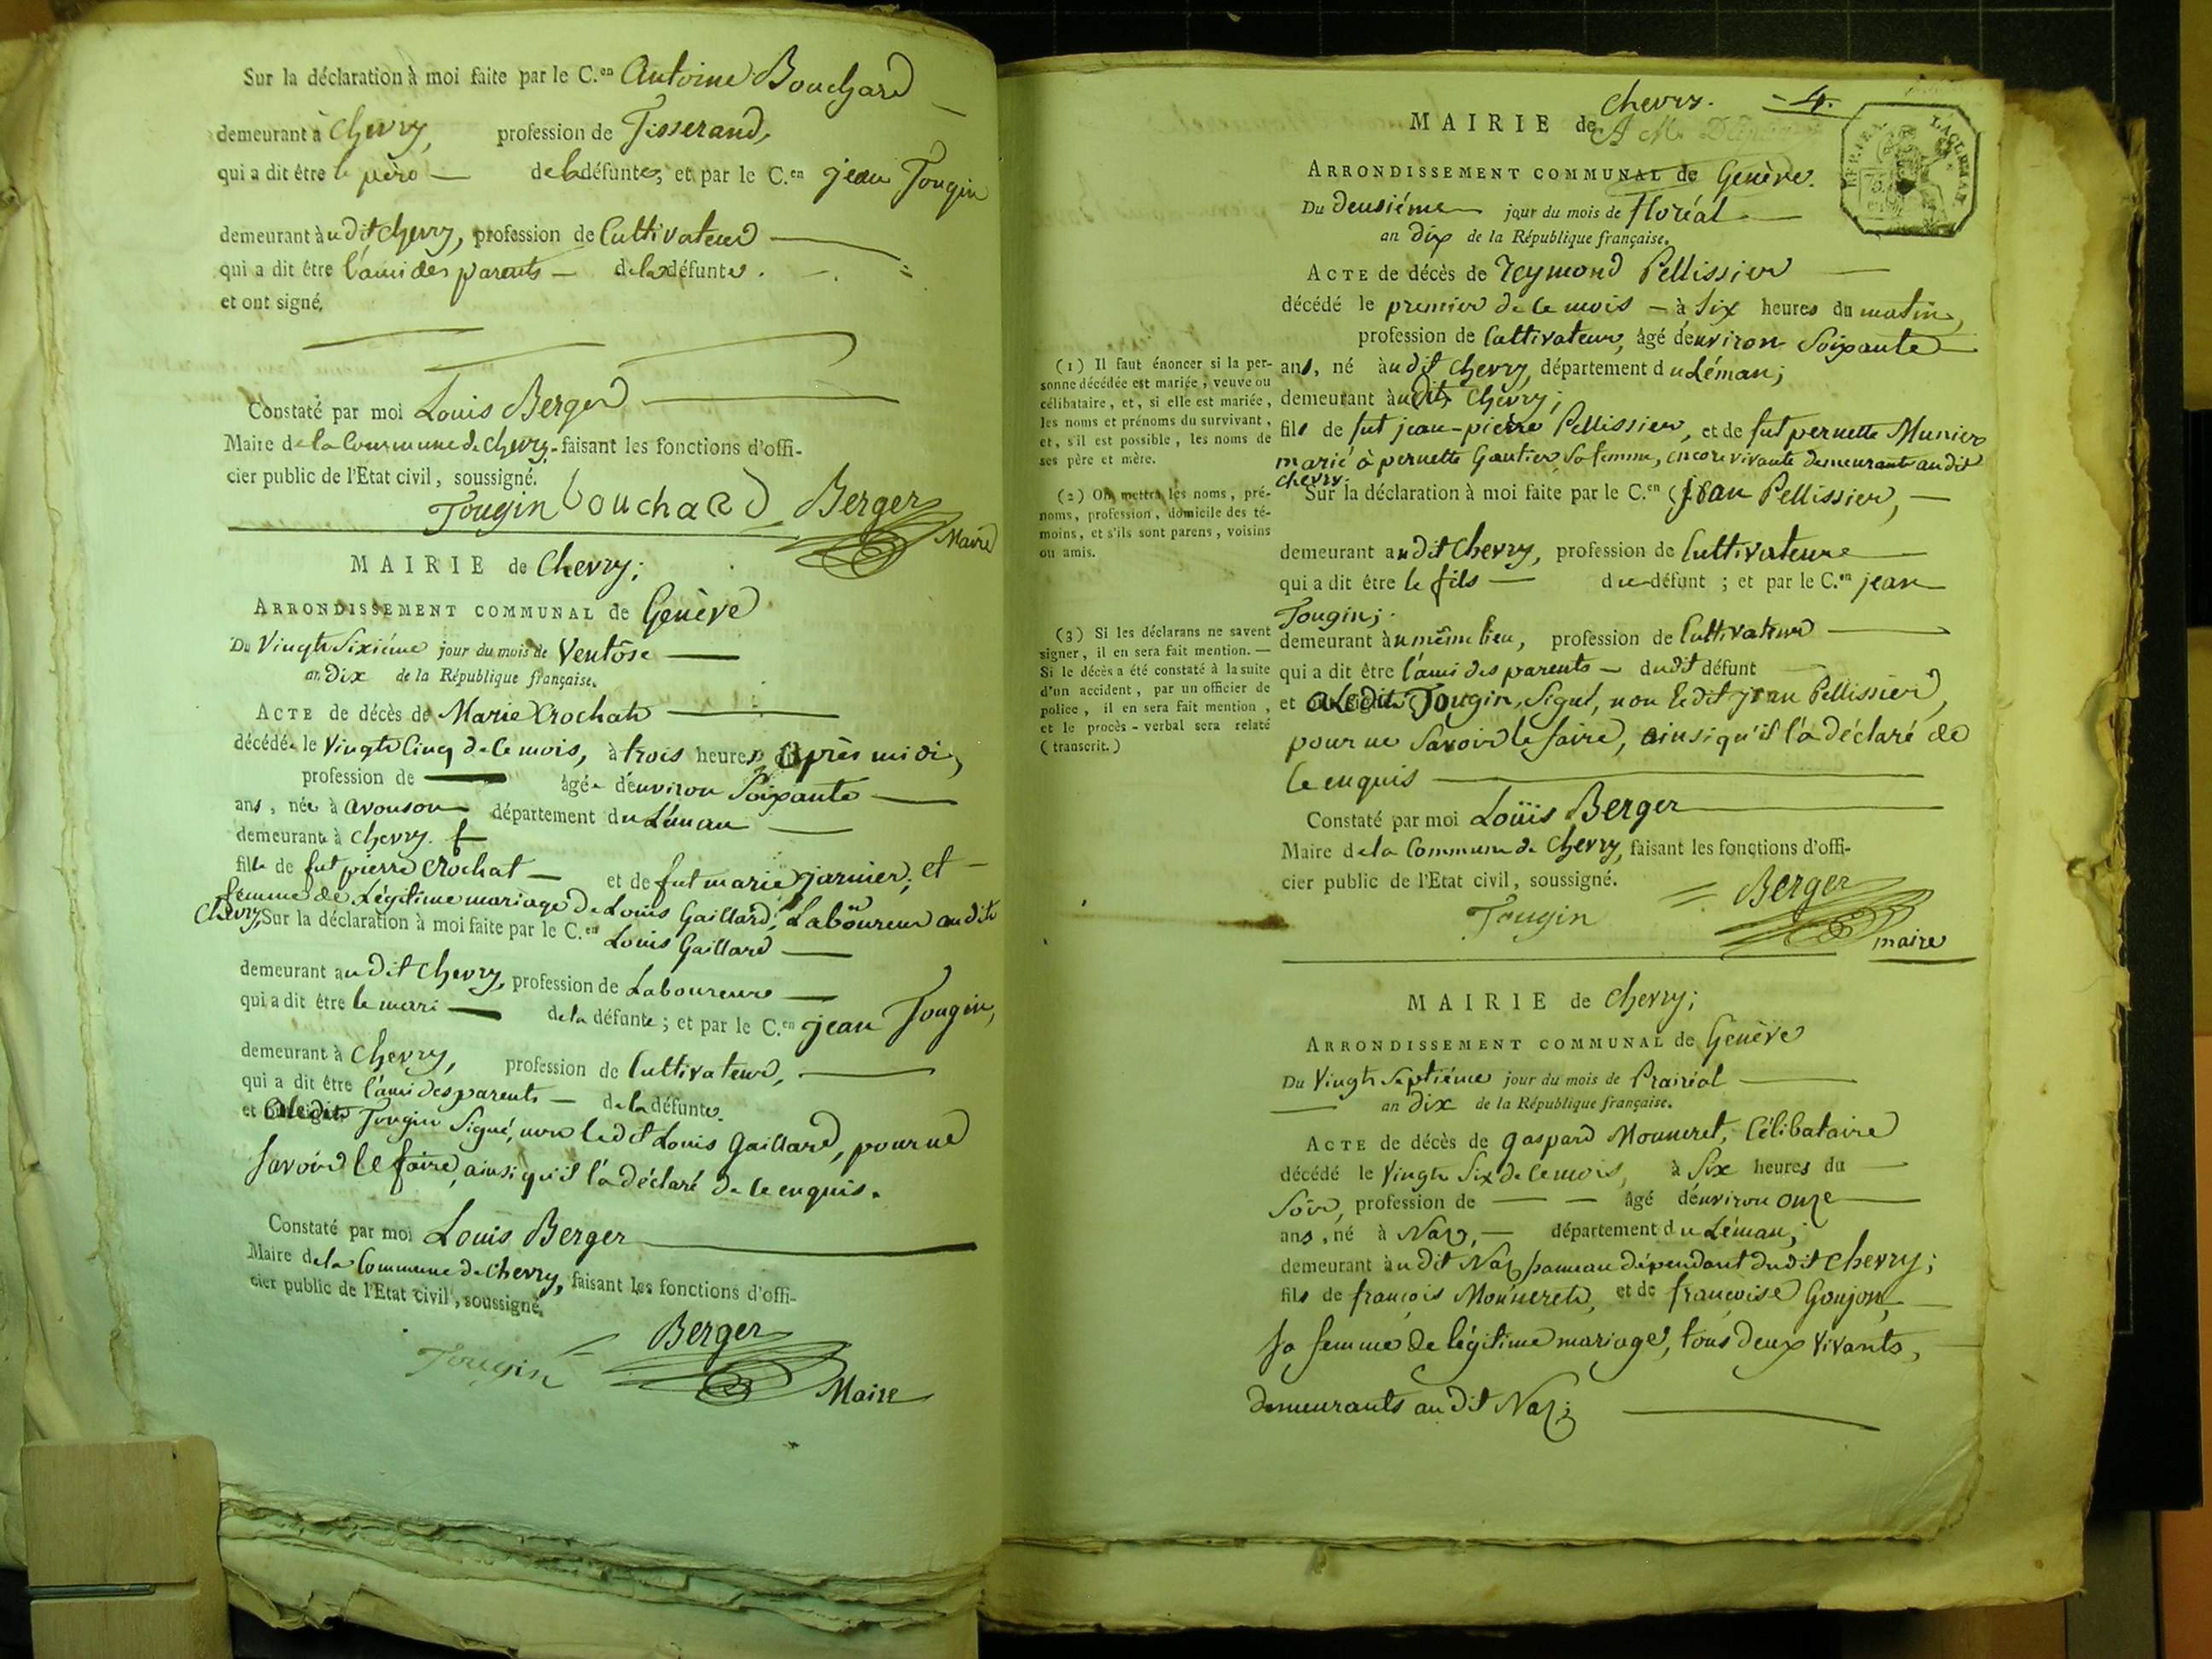 Sur la déclaration à moi faite par le C.en Antoine Bouchard
demeurant à Chevry, profession de Tisserand,
qui a dit être le père de la défunte, et par le C.en jean Tougin
demeurant àudit Chevry, profession de Cultivateur
qui a dit être l'ami des parents de la défunte.
et ont signé,
Constaté par moi Louis Berger
Maire de la Commune de Chevry, faisant les fonctions d'offi-
cier public de l'Etat civil, soussigné.
Tougin bouchard Berger
Maire
MAIRIE de Chevry;
ARRONDISSEMENT COMMUNAL de Genève
Du Vingt Sixiéme jour du mois de Ventôse
an Dix de la République française.
ACTE de décès de Marie Crochat
décédée le Vingt Cinq de ce mois, à trois heures après midi,
profession de âgée d'environ Soixante
ans, née à avouson département du Léman
demeurante à Chevry.
fille de fut pierre Crochat et de fut marie jarnier, et
femme de Légitime mariage de Louis Gaillard, Laboureur audit
Chevry, Sur la déclaration à moi faite par le C.en Louis Gaillard
demeurant audit Chevry, profession de Laboureur
qui a dit être le mari de la défunte; et par le C.en jean Tougin,
demeurant à Chevry, profession de Cultivateur,
qui a dit être l'ami des parents de la défunte.
et a ledit Tougin Signé, non ledit Louis Gaillard, pour ne
Savoir le faire, ainsi qu'il l'a déclaré de ce enquis.
Constaté par moi Louis Berger
Maire de la Commune de Chevry, faisant les fonctions d'offi-
cier public de l'Etat civil, soussigné.
Tougin Berger
Maire
chevry. 4.
MAIRIE de
ARRONDISSEMENT COMMUNAL de Genève.
Du deusiéme jour du mois de floréal
an Dix de la République française.
ACTE de décès de Reymond Pellissier
décédé le premier de ce mois à Six heures du matin,
profession de Cultivateur, âgé d'environ Soixante
(1) Il faut énoncer si la per-
sonne décédée est mariée, veuve ou
célibataire, et, si elle est mariée,
les noms et prénoms du survivant,
et, s'il est possible, les noms de
ses père et mère.
ans, né àudit Chevry, département du Léman;
demeurant àudit Chevry;
fils de fut jean-pierre Pellissier, et de fut pernette Munier
marié à pernette Gautier Sa femme, encore vivante demeurante audit
chevry.
(2) On mettra les noms, pré-
noms, profession, domicile des té-
moins, et s'ils sont parens, voisins
ou amis.
Sur la déclaration à moi faite par le C.en jean Pellissier,
demeurant audit Chevry, profession de Cultivateur
qui a dit être le fils du défunt; et par le C.en jean
Tougin;
(3) Si les déclarans ne savent
signer, il en sera fait mention. —
Si le décès a été constaté à la suite
d'un accident, par un officier de
police, il en sera fait mention,
et le procès-verbal sera relaté
(transcrit.)
demeurant àu même lieu, profession de Cultivateur
qui a dit être l'ami des parents dudit défunt
et a ledit Tougin, Signé, non ledit jean Pellissier,
pour ne Savoir le faire, ainsi qu'il l'a déclaré de
ce enquis
Constaté par moi Loüis Berger
Maire de la Commune de Chevry, faisant les fonctions d'offi-
cier public de l'Etat civil, soussigné.
Tougin Berger
maire
MAIRIE de Chevry;
ARRONDISSEMENT COMMUNAL de Genève
Du Vingt Septiéme jour du mois de Prairéal
an Dix de la République française.
ACTE de décès de gaspard Monneret, Célibataire
décédé le Vingt Six de ce mois, à Six heures du
Soir, profession de âgé d'environ onze
ans, né à Naz, département du Léman;
demeurant àudit Naz hameau dépendant dudit Chevry;
fils de françois Monneret, et de francoise Goujon,
Sa femme de légitime mariage, tous deux vivants,
demeurants audit Naz;